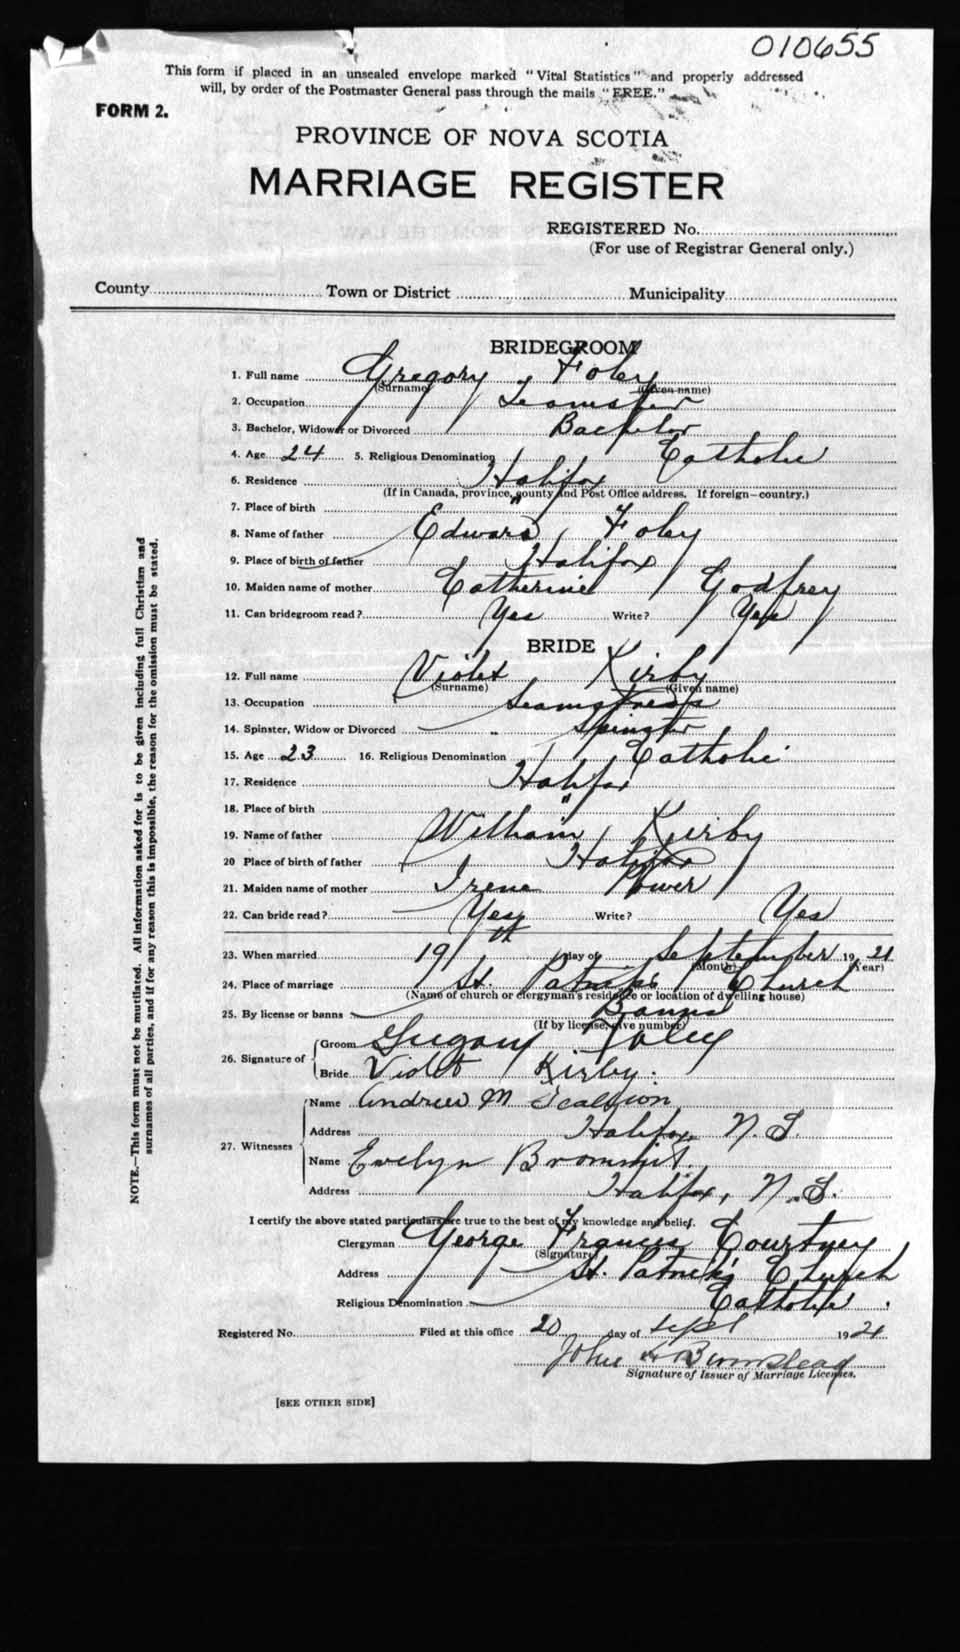 010655
This form if placed in an unsealed envelope marked "Vital Statistics" and properly addressed
will, by order of the Postmaster General pass through the mails "FREE."
FORM 2.
PROVINCE OF NOVA SCOTIA
MARRIAGE REGISTER
REGISTERED No.
(For use of Registrar General only.)
County Town or District Municipality
BRIDEGROOM
1. Full name Gregory Foley
(Surname) (Given name)
2. Occupation Teamster
3. Bachelor, Widower or Divorced Bachelor
4. Age 24 5. Religious Denomination Catholic
6. Residence Halifax
(If in Canada, province, county and Post Office address. If foreign—country.)
7. Place of birth "
8. Name of father Edward Foley
9. Place of birth of father Halifax
10. Maiden name of mother Catherine Godfrey
11. Can bridegroom read? Yes Write? Yes
BRIDE
12. Full name Violet Kirby
(Surname) (Given name)
13. Occupation Seamstress
14. Spinster, Widow or Divorced Spinster
15. Age 23 16. Religious Denomination Catholic
17. Residence Halifax
18. Place of birth "
19. Name of father William Kirby
20 Place of birth of father Halifax
21. Maiden name of mother Irene Power
22. Can bride read? Yes Write? Yes
23. When married 19th day of September 1921
(Month) (Year)
24. Place of marriage St. Patrick's Church
(Name of church or clergyman's residence or location of dwelling house)
25. By license or banns Banns
(If by license, give number)
26. Signature of Groom Gregory Foley
Bride Violet Kirby.
27. Witnesses Name Andrew M Scallion
Address Halifax, N. S.
Name Evelyn
Address Halifax, N.S.
I certify the above stated particulars are true to the best of my knowledge and belief.
Clergyman George Francis Courtney
(Signature)
Address St. Patrick's Church
Religious Denomination Catholic.
Registered No. Filed at this office 20 day of Sept 1921
John
Signature of Issuer of Marriage Licenses.
[SEE OTHER SIDE]
NOTE.—This form must not be mutilated. All information asked for is to be given including full Christian and
surnames of all parties, and if for any reason this is impossible, the reason for the omission must be stated.